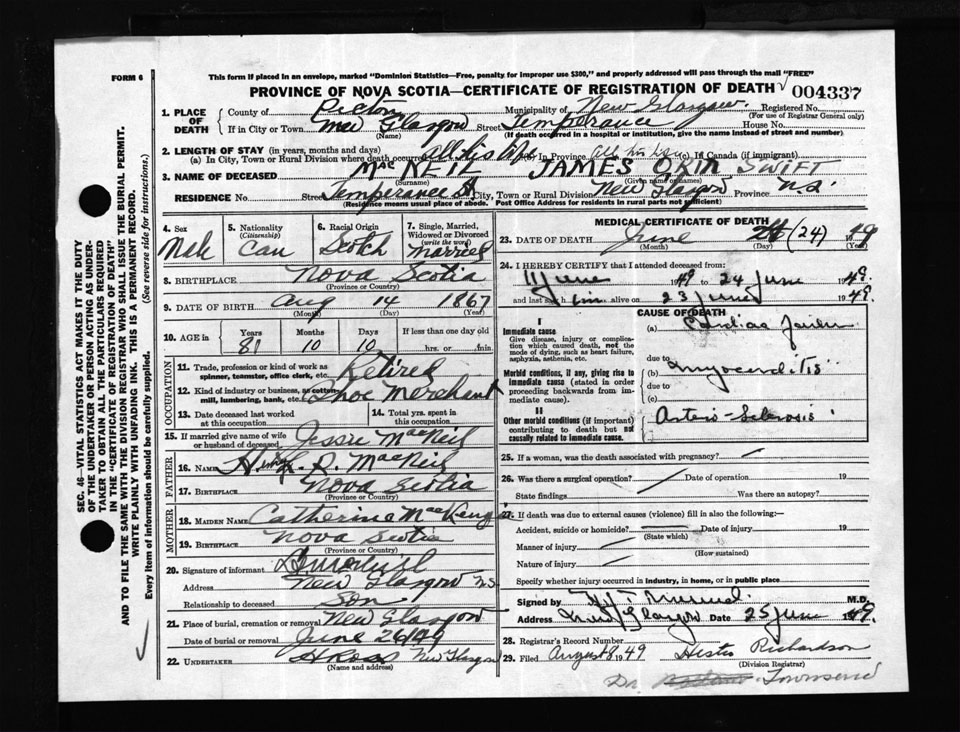 FORM 6
This form if placed in an envelope, marked "Dominion Statistics—Free, penalty for improper use $300," and properly addressed will pass through the mail "FREE"
PROVINCE OF NOVA SCOTIA—CERTIFICATE OF REGISTRATION OF DEATH 004337
1. PLACE OF DEATH
County of Pictou Municipality of New Glasgow Registered No.
(For use of Registrar General only)
If in City or Town New Glasgow Street Temperance House No.
(Name) (If death occurred in a hospital or institution, give name instead of street and number)
2. LENGTH OF STAY (in years, months and days)
(a) In City, Town or Rural Division where death occurred all his life (b) In Province all his life (c) In Canada (if immigrant)
3. NAME OF DECEASED MacNEIL JAMES SWIFT
(Surname) (Given name or names)
RESIDENCE No. Street Temperance St City, Town or Rural Division New Glasgow Province N.S.
(Residence means usual place of abode. Post Office Address for residents in rural parts not sufficient)
4. Sex Male
5. Nationality (Citizenship) Can
6. Racial Origin Scotch
7. Single, Married, Widowed or Divorced (write the word) Married
8. BIRTHPLACE Nova Scotia
(Province or Country)
9. DATE OF BIRTH Aug 14 1867
(Month) (Day) (Year)
10. AGE in Years Months Days If less than one day old
81 10 10 hrs. or min.
OCCUPATION
11. Trade, profession or kind of work as spinner, teamster, office clerk, etc. Retired
12. Kind of industry or business, as cotton mill, lumbering, bank, etc. Shoe Merchant
13. Date deceased last worked at this occupation
14. Total yrs. spent in this occupation
15. If married give name of wife or husband of deceased Jessie MacNeil
FATHER
16. NAME R. MacNeil
17. BIRTHPLACE Nova Scotia
(Province or Country)
MOTHER
18. MAIDEN NAME Catherine MacKenzie
19. BIRTHPLACE Nova Scotia
(Province or Country)
20. Signature of informant
Address New Glasgow N.S.
Relationship to deceased Son
21. Place of burial, cremation or removal New Glasgow
Date of burial or removal June 26/49
22. UNDERTAKER H Ross New Glasgow
(Name and address)
MEDICAL CERTIFICATE OF DEATH
23. DATE OF DEATH June 24 (24) 1949
(Month) (Day) (Year)
24. I HEREBY CERTIFY that I attended deceased from:
11 June 1949 to 24 June 1949
and last saw him alive on 23 June 1949.
CAUSE OF DEATH
I
Immediate cause
Give disease, injury or complication which caused death, not the mode of dying, such as heart failure, asphyxia, asthenia, etc.
(a) Cardiac failure
due to
Morbid conditions, if any, giving rise to immediate cause (stated in order proceeding backwards from immediate cause).
(b) myocarditis
due to
(c)
II
Other morbid conditions (if important) contributing to death but not causally related to immediate cause.
Arterio-Sclerosis
25. If a woman, was the death associated with pregnancy?
26. Was there a surgical operation? Date of operation 19
State findings Was there an autopsy?
27. If death was due to external causes (violence) fill in also the following:
Accident, suicide or homicide? Date of injury 19
(State which)
Manner of injury
(How sustained)
Nature of injury
Specify whether injury occurred in industry, in home, or in public place
Signed by M.D.
Address New Glasgow Date 25 June 1949
28. Registrar's Record Number
29. Filed August 8 1949 Hester Richardson
(Division Registrar)
Dr. Townsend
SEC. 46—VITAL STATISTICS ACT MAKES IT THE DUTY
OF THE UNDERTAKER OR PERSON ACTING AS UNDER-
TAKER TO OBTAIN ALL THE PARTICULARS REQUIRED
IN THE "CERTIFICATE OF REGISTRATION OF DEATH"
AND TO FILE THE SAME WITH THE DIVISION REGISTRAR WHO SHALL ISSUE THE BURIAL PERMIT.
WRITE PLAINLY WITH UNFADING INK. THIS IS A PERMANENT RECORD.
Every item of information should be carefully supplied. (See reverse side for instructions.)